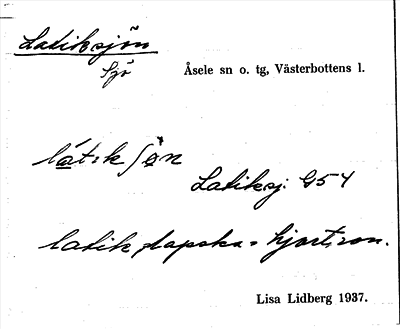 Latiksjön
Sjö
Åsele sn o. tg, Västerbottens l.
látɩk ʃøn
Latiksj. G54
latik, lapska = hjortron.
Lisa Lidberg 1937.